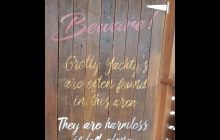 Beware!
Grotty Yachty's
are often found
in this area
They are harmless